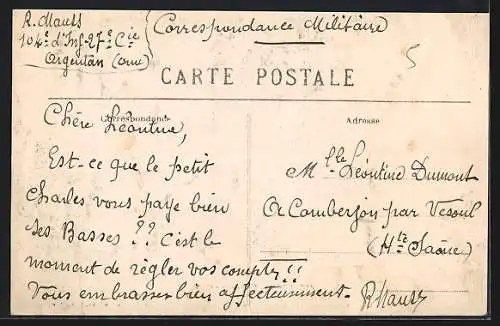 R. Mauss
104e d'Inf-27e Cie
Argentan (Orne)
Correspondance Militaire
5
CARTE POSTALE
Correspondance
Adresse
Chère Léontine,
Est-ce que le petit
Charles vous paye bien
ses Basses ?? C'est le
moment de règler vos comptes !!
Vous embrasse bien affectueusement.
Mlle Léontine Dumont
A Comberjon par Vesoul
(Hte Saône)
R Mauss